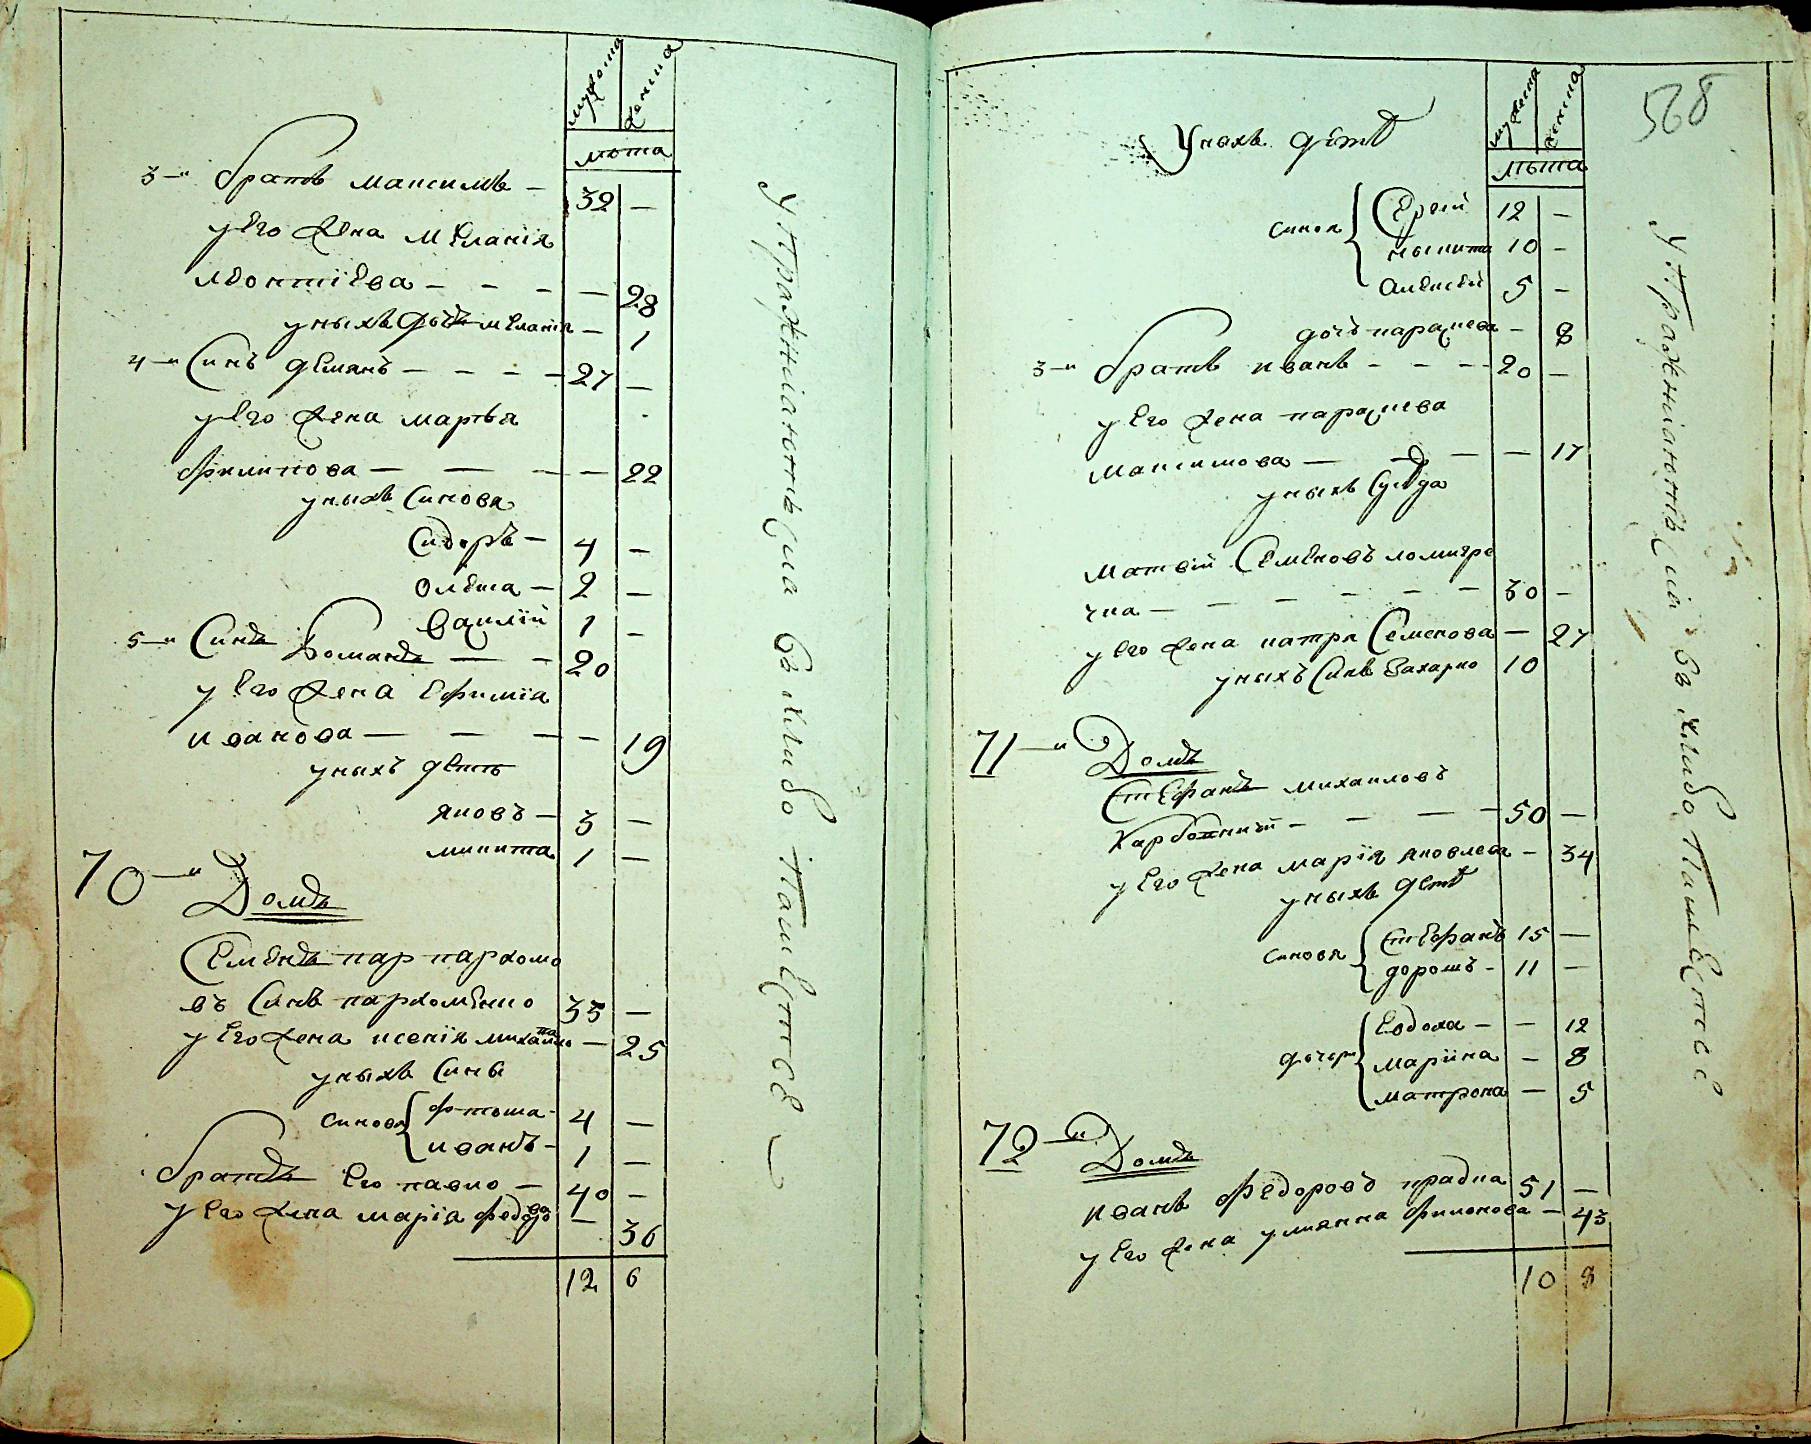 мужеска женска
лѣта
3-й братъ максимъ — 32 —
у Его жена мЕланія
лЕонтіЕва — — — — 28
уныхъ дочъ мЕланія — 1
4-й Синъ дЕмянъ — — — — 27 —
у Его жена марѳа
Филипова — — — — 22
уныхъ Синовя
Сидоръ — 4 —
олЕкса — 2 —
Василій 1 —
5-й Синъ Романъ — — 20
у Его жена Ефимія
иванова — — — — 19
уныхъ дЕтѣ
яковъ — 3 —
микита 1 —
70-й Домъ
СЕмЕнъ пар пархомо
въ Синъ пархомЕнко 35 —
у Его жена ксенія михайло — 25
уныхъ Сины
Синовя
иванъ — 1 —
братъ Его павло — 40 —
у Его жена марія федорова — 36
12 6
въ хлибо пашЕствЕ
568
мужеска женска
лѣта
Уныхъ дѣтЕ
Синовя
Ерѳій 12 —
мыкита 10 —
АлЕксЕй 5 —
дочъ параскева — 8
3-й братъ иванъ — — — 20 —
у Его жена параскева
максимова — — — — 17
уныхъ Сусѣда
матвій СЕмЕновъ ломигре
чка — — — — — — 30 —
у Его жена катря Семенова — 27
уныхъ Синъ Захарко 10
71-й Домъ
СтЕфанъ михаиловъ
— — — — 50 —
у Его жена марія яковлева — 34
уныхъ дѣтЕ
Синовя
СтЕфанъ 15 —
дорошъ — 11 —
дочери
Евдоха — — 12
маріина — 8
матрона — 5
72-й Домъ
иванъ ФЕдоровъ прадка 51 —
у Его жена улиянна Филонова — 43
10 8
въ хлибо пашЕствЕ